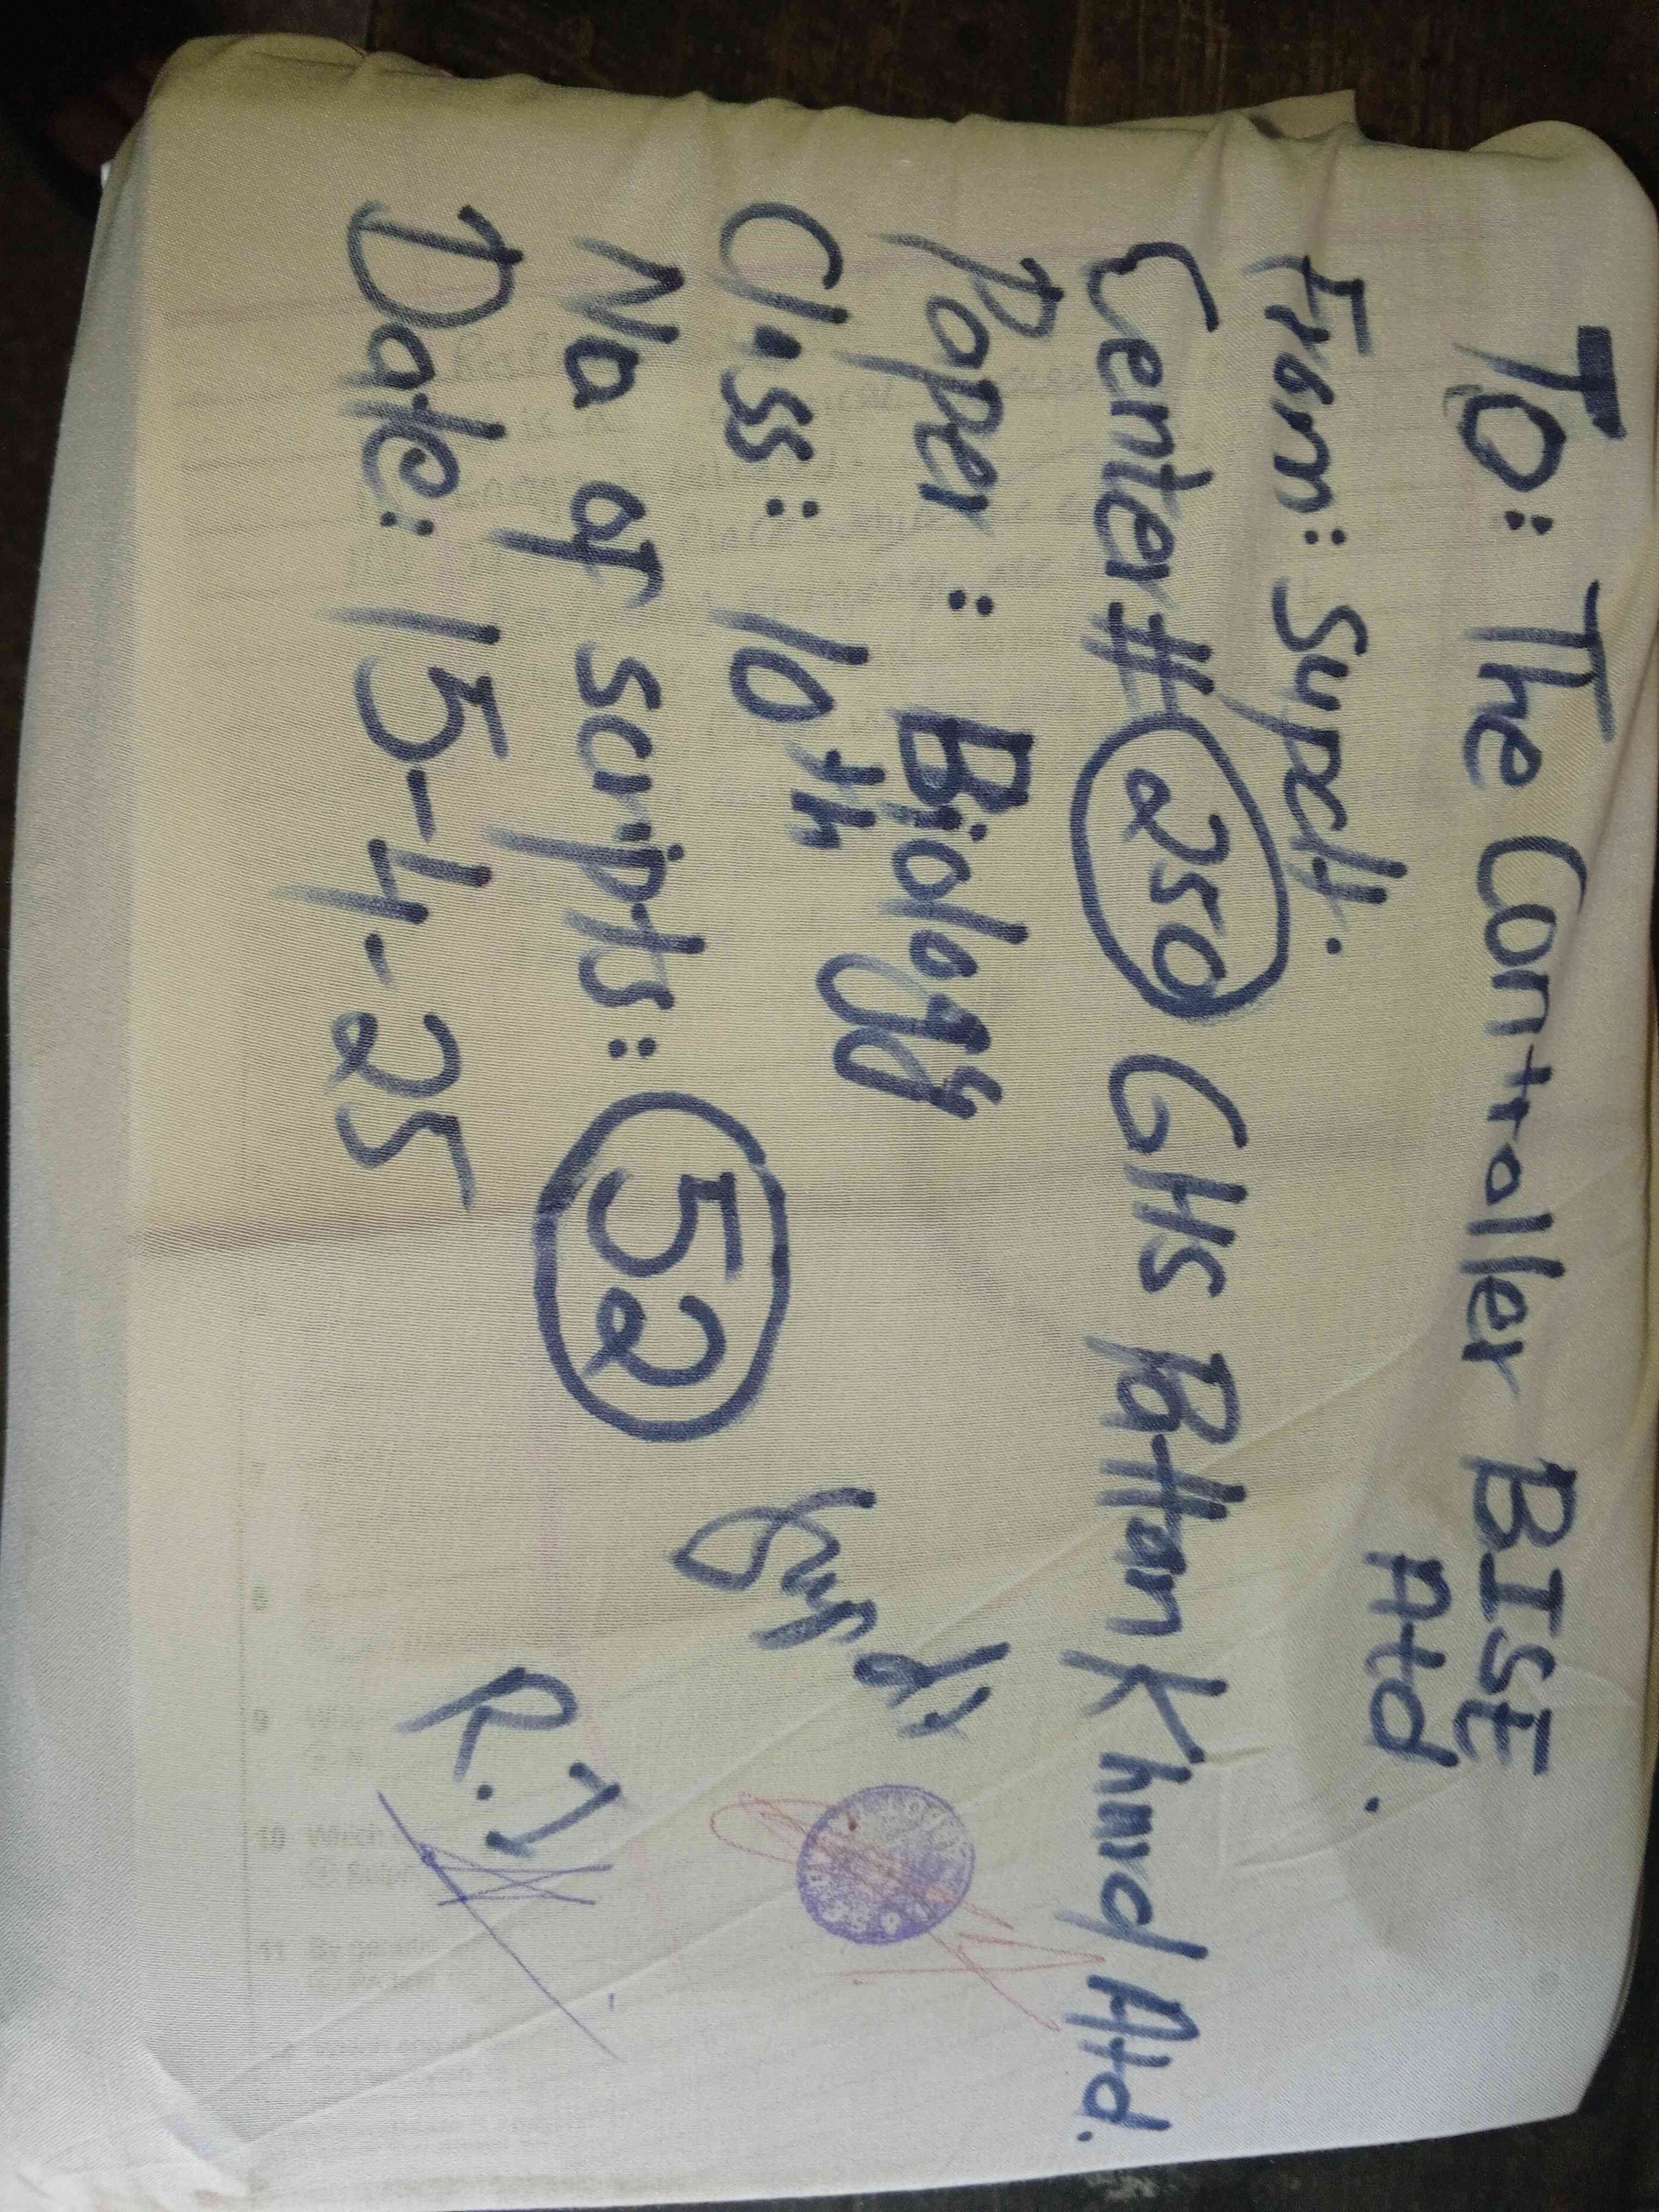 To: The Controller BISE
Atd.
From: Supdt.
Center# 250 GHS Pattan Khurd Atd.
Paper: Biology
Class: 10th
No of scripts: 52
Date: 15-4-25
Supdt:
R.I